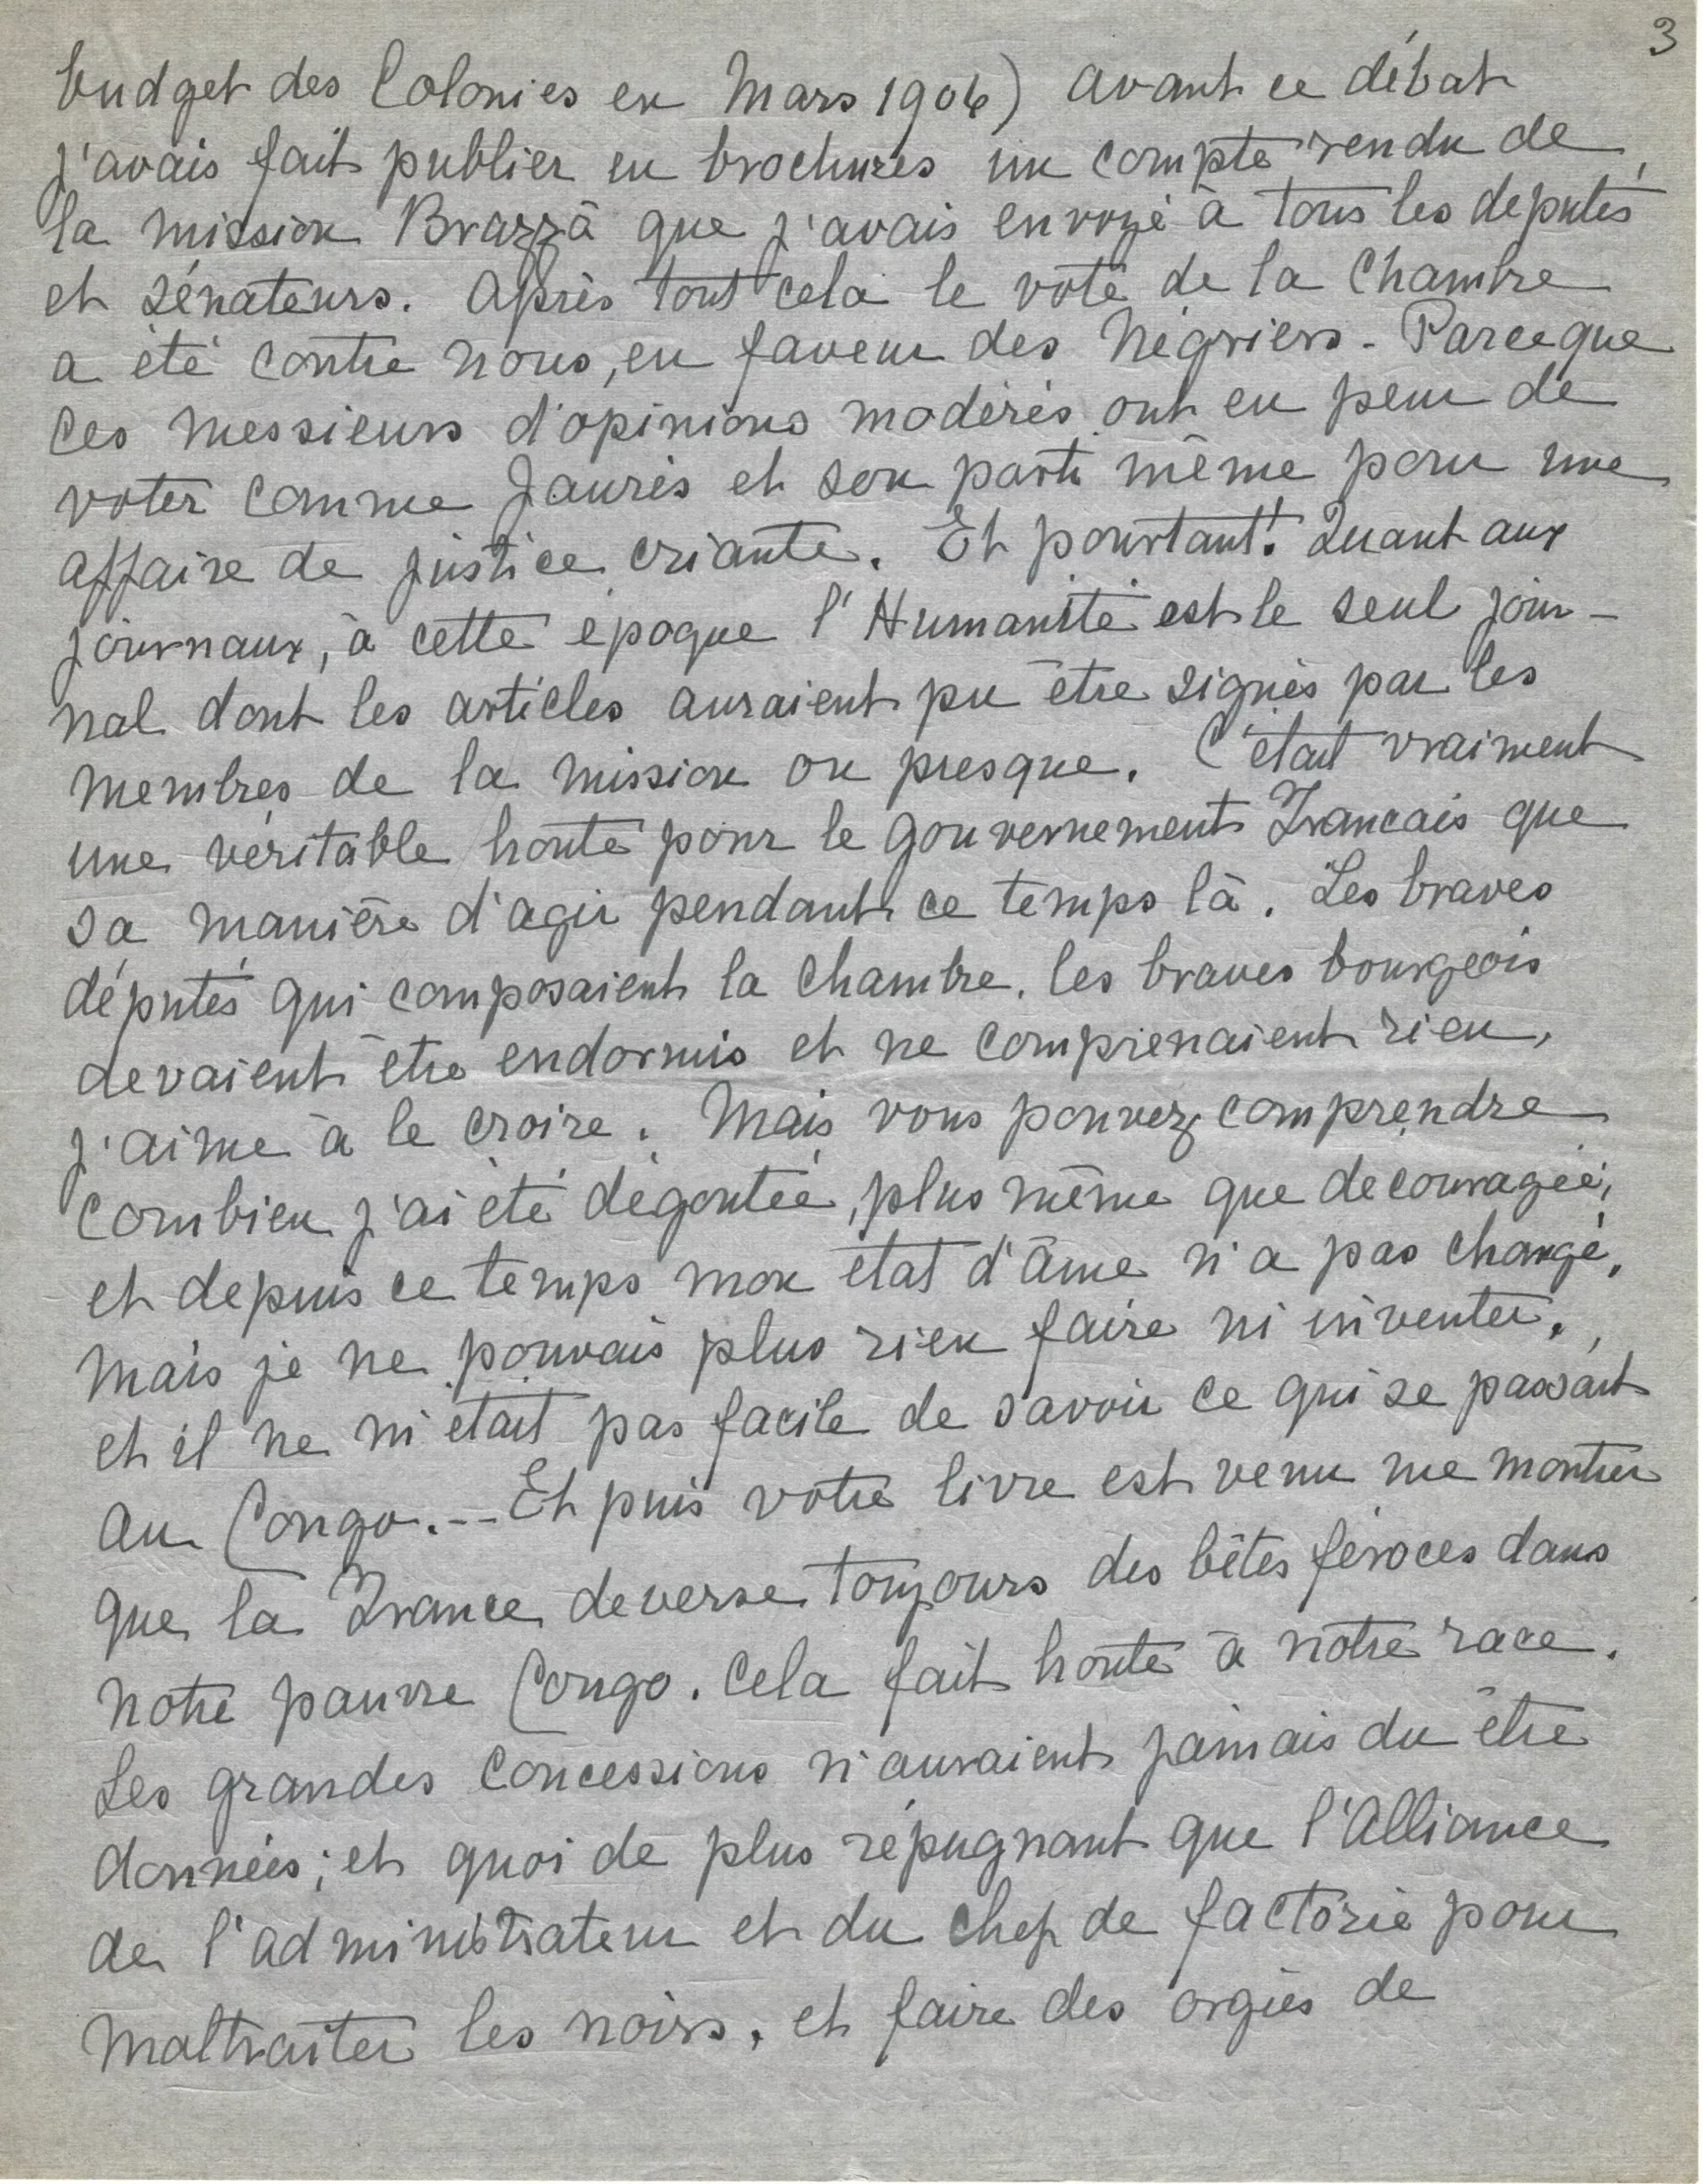 3
budget des Colonies en Mars 1906) avant ce débat
j'avais fait publier en brochures un compte rendu de
la mission Brazza que j'avais envoyé à tous les députés
et sénateurs. Après tout cela le vote de la Chambre
a été contre nous, en faveur des Négriers - Parceque
ces messieurs d'opinions modérés ont eu peur de
voter comme Jaurès et son parti même pour une
affaire de justice criante. Et pourtant! Quant aux
journaux, à cette époque l'Humanité est le seul jour-
nal dont les articles auraient pu être signés par les
membres de la mission ou presque. C'était vraiment
une véritable honte pour le gouvernement Francais que
sa manière d'agir pendant ce temps là. Les braves
députés qui composaient la Chambre, les braves bourgeois
devaient être endormis et ne comprenaient rien,
j'aime à le croire. Mais vous pouvez comprendre
combien j'ai été dégoutée, plus même que decouragée,
et depuis ce temps mon état d'âme n'a pas changé,
mais je ne pouvais plus rien faire ni inventer.
et il ne m'était pas facile de savoir ce qui se passait
au Congo. -- Et puis votre livre est venu me montrer
que la France deverse toujours des bêtes féroces dans
notre pauvre Congo. Cela fait honte à notre race.
Les grandes concessions n'auraient jamais du être
données; et quoi de plus répugnant que l'Alliance
de l'administrateur et du chef de factorie pour
maltraiter les noirs, et faire des orgies de